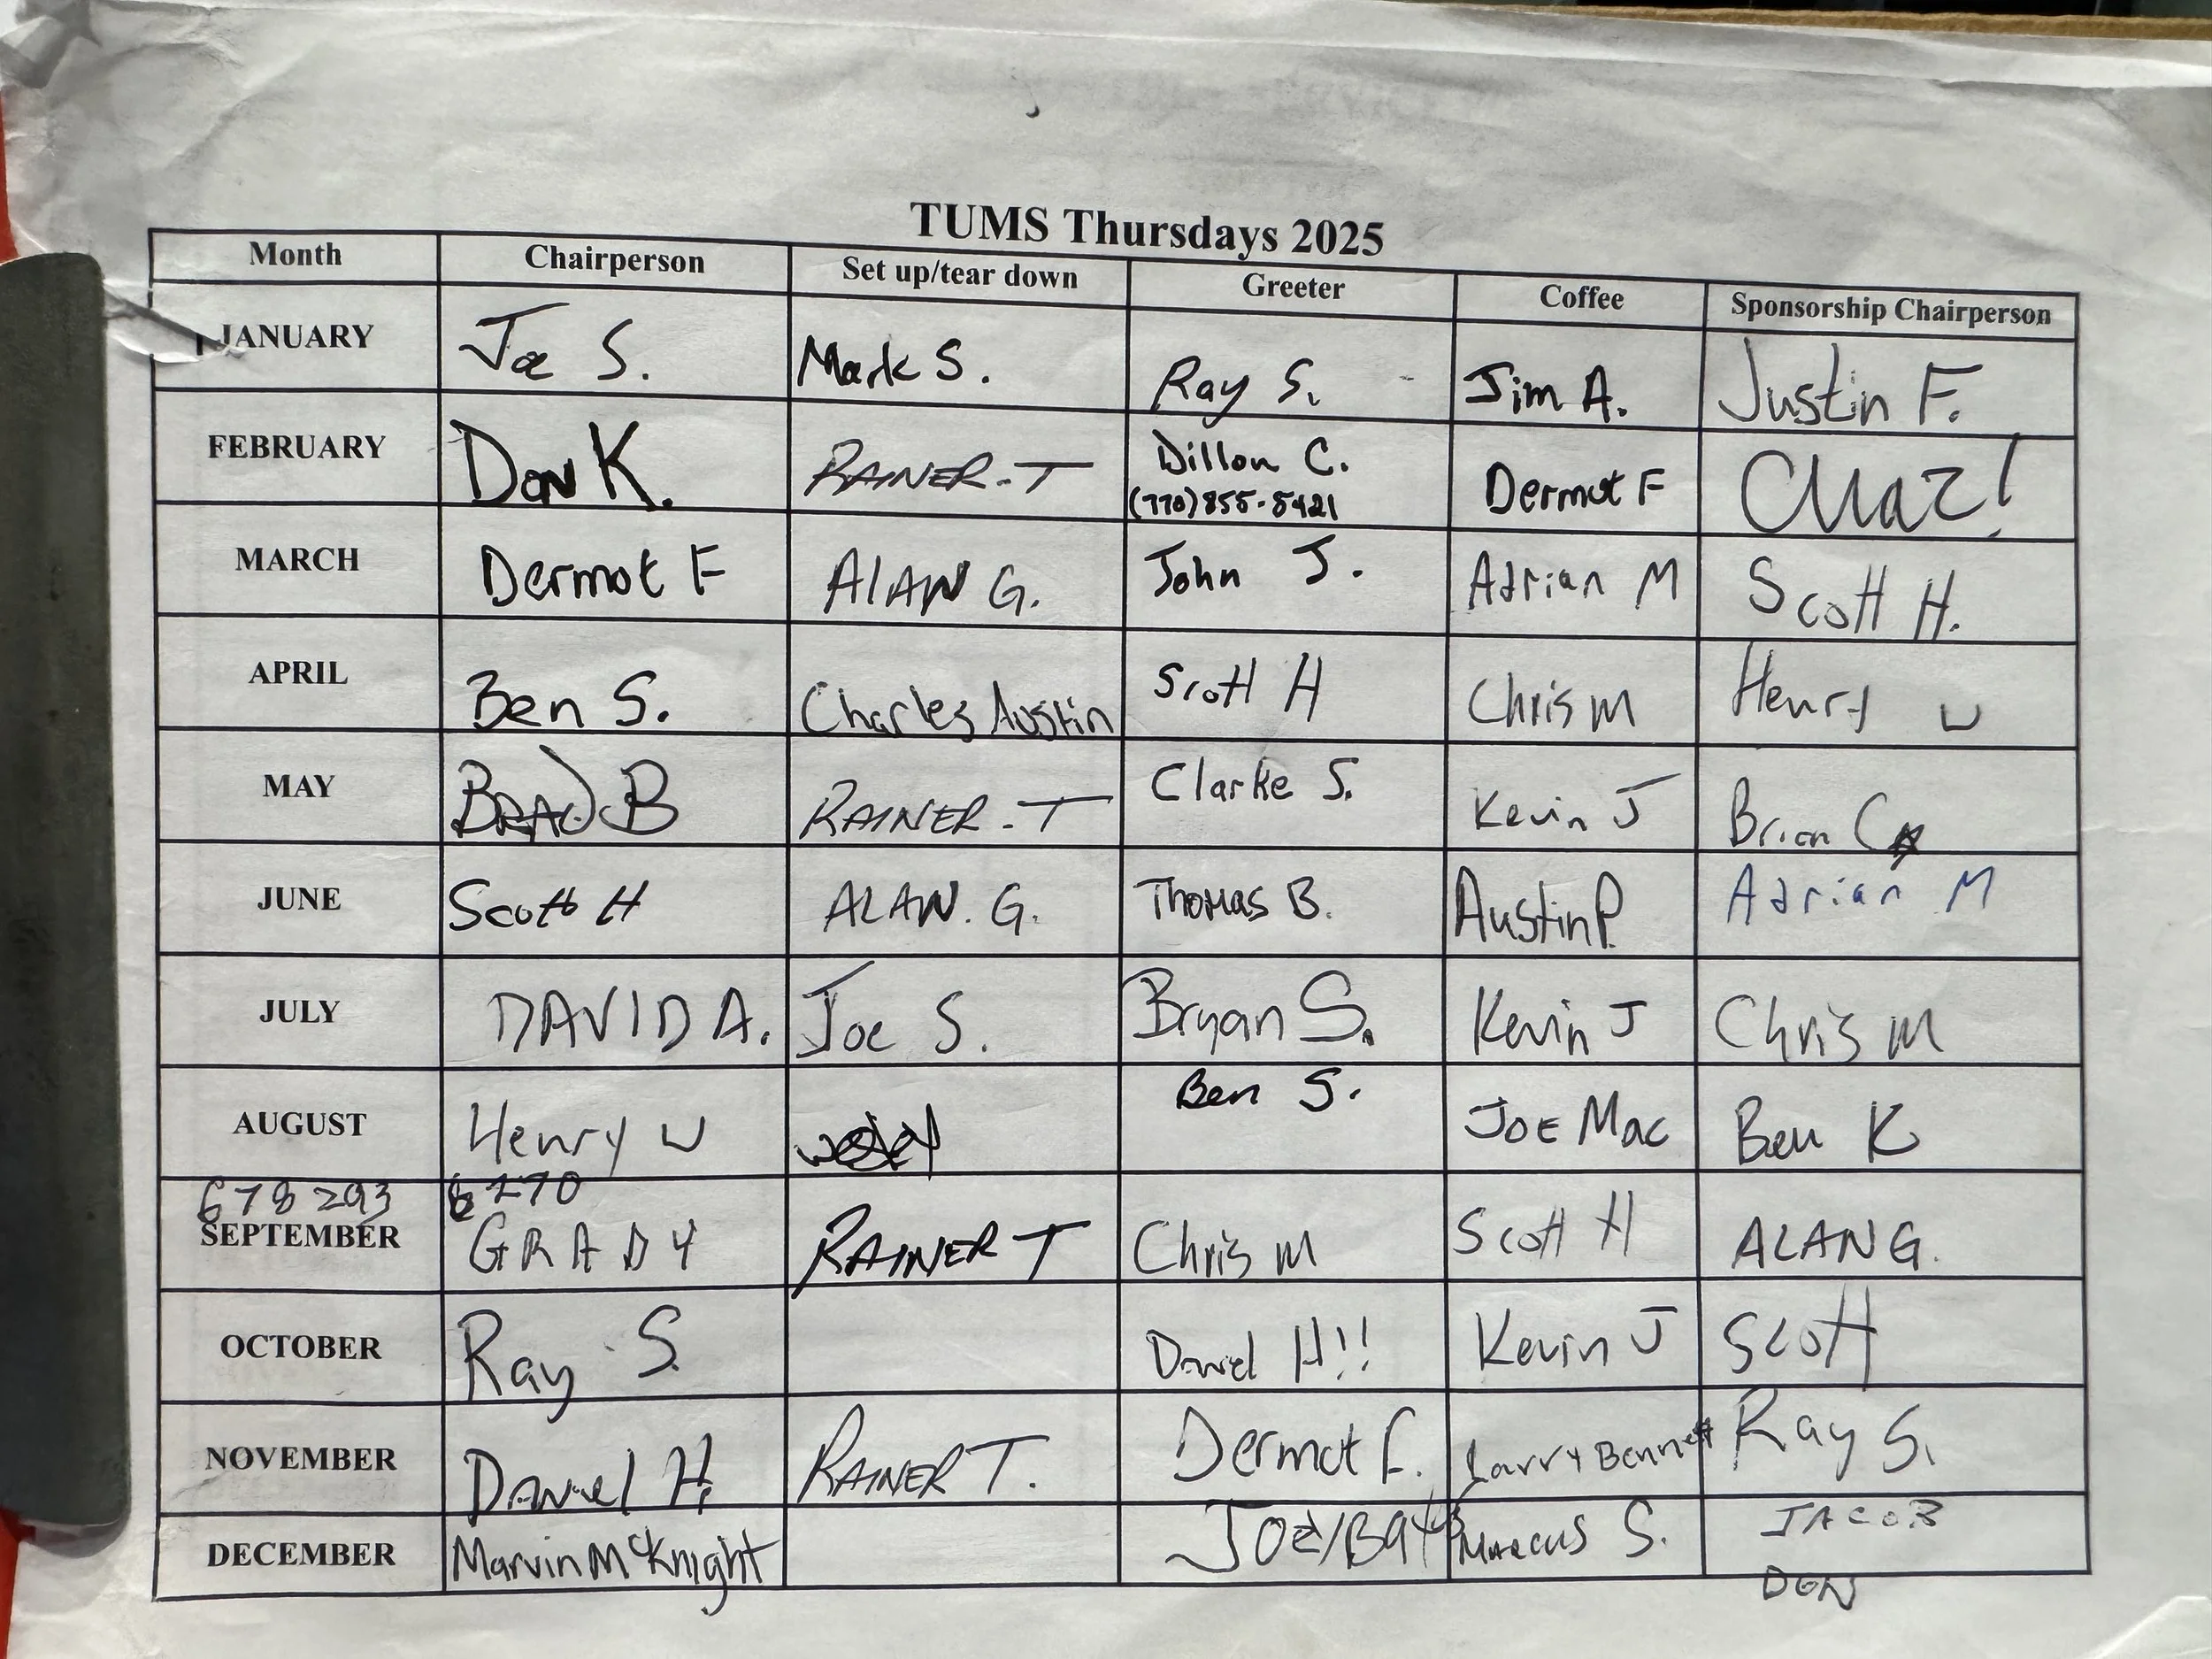 TUMS Thursdays 2025
Month Chairperson Set up/tear down Greeter Coffee Sponsorship Chairperson
JANUARY Joe S. Mark S. Ray S. Jim A. Justin F.
FEBRUARY Dan K. RAINER-T Dillon C. Dermot F Chaz!
(770)855-5421
MARCH Dermot F ALAN G. John J. Adrian M Scott H.
APRIL Ben S. Charles Austin Scott H Chris M Henry W
MAY BRAD B RAINER-T Clarke S. Kevin J Brian C
JUNE Scott H ALAN. G. Thomas B. Austin P. Adrian M
JULY DAVID A. Joe S. Bryan S. Kevin J Chris M
AUGUST Henry W Ben S. JOE Mac Ben K
678 293 6270
SEPTEMBER GRADY RAINER T Chris M Scott H ALAN G.
OCTOBER Ray S. Daniel H!! Kevin J Scott
NOVEMBER Daniel H. RAINER T. Dermot F. Larry Bennett Ray S.
DECEMBER Marvin McKnight Joe/ Marcus S. JACOB
DON